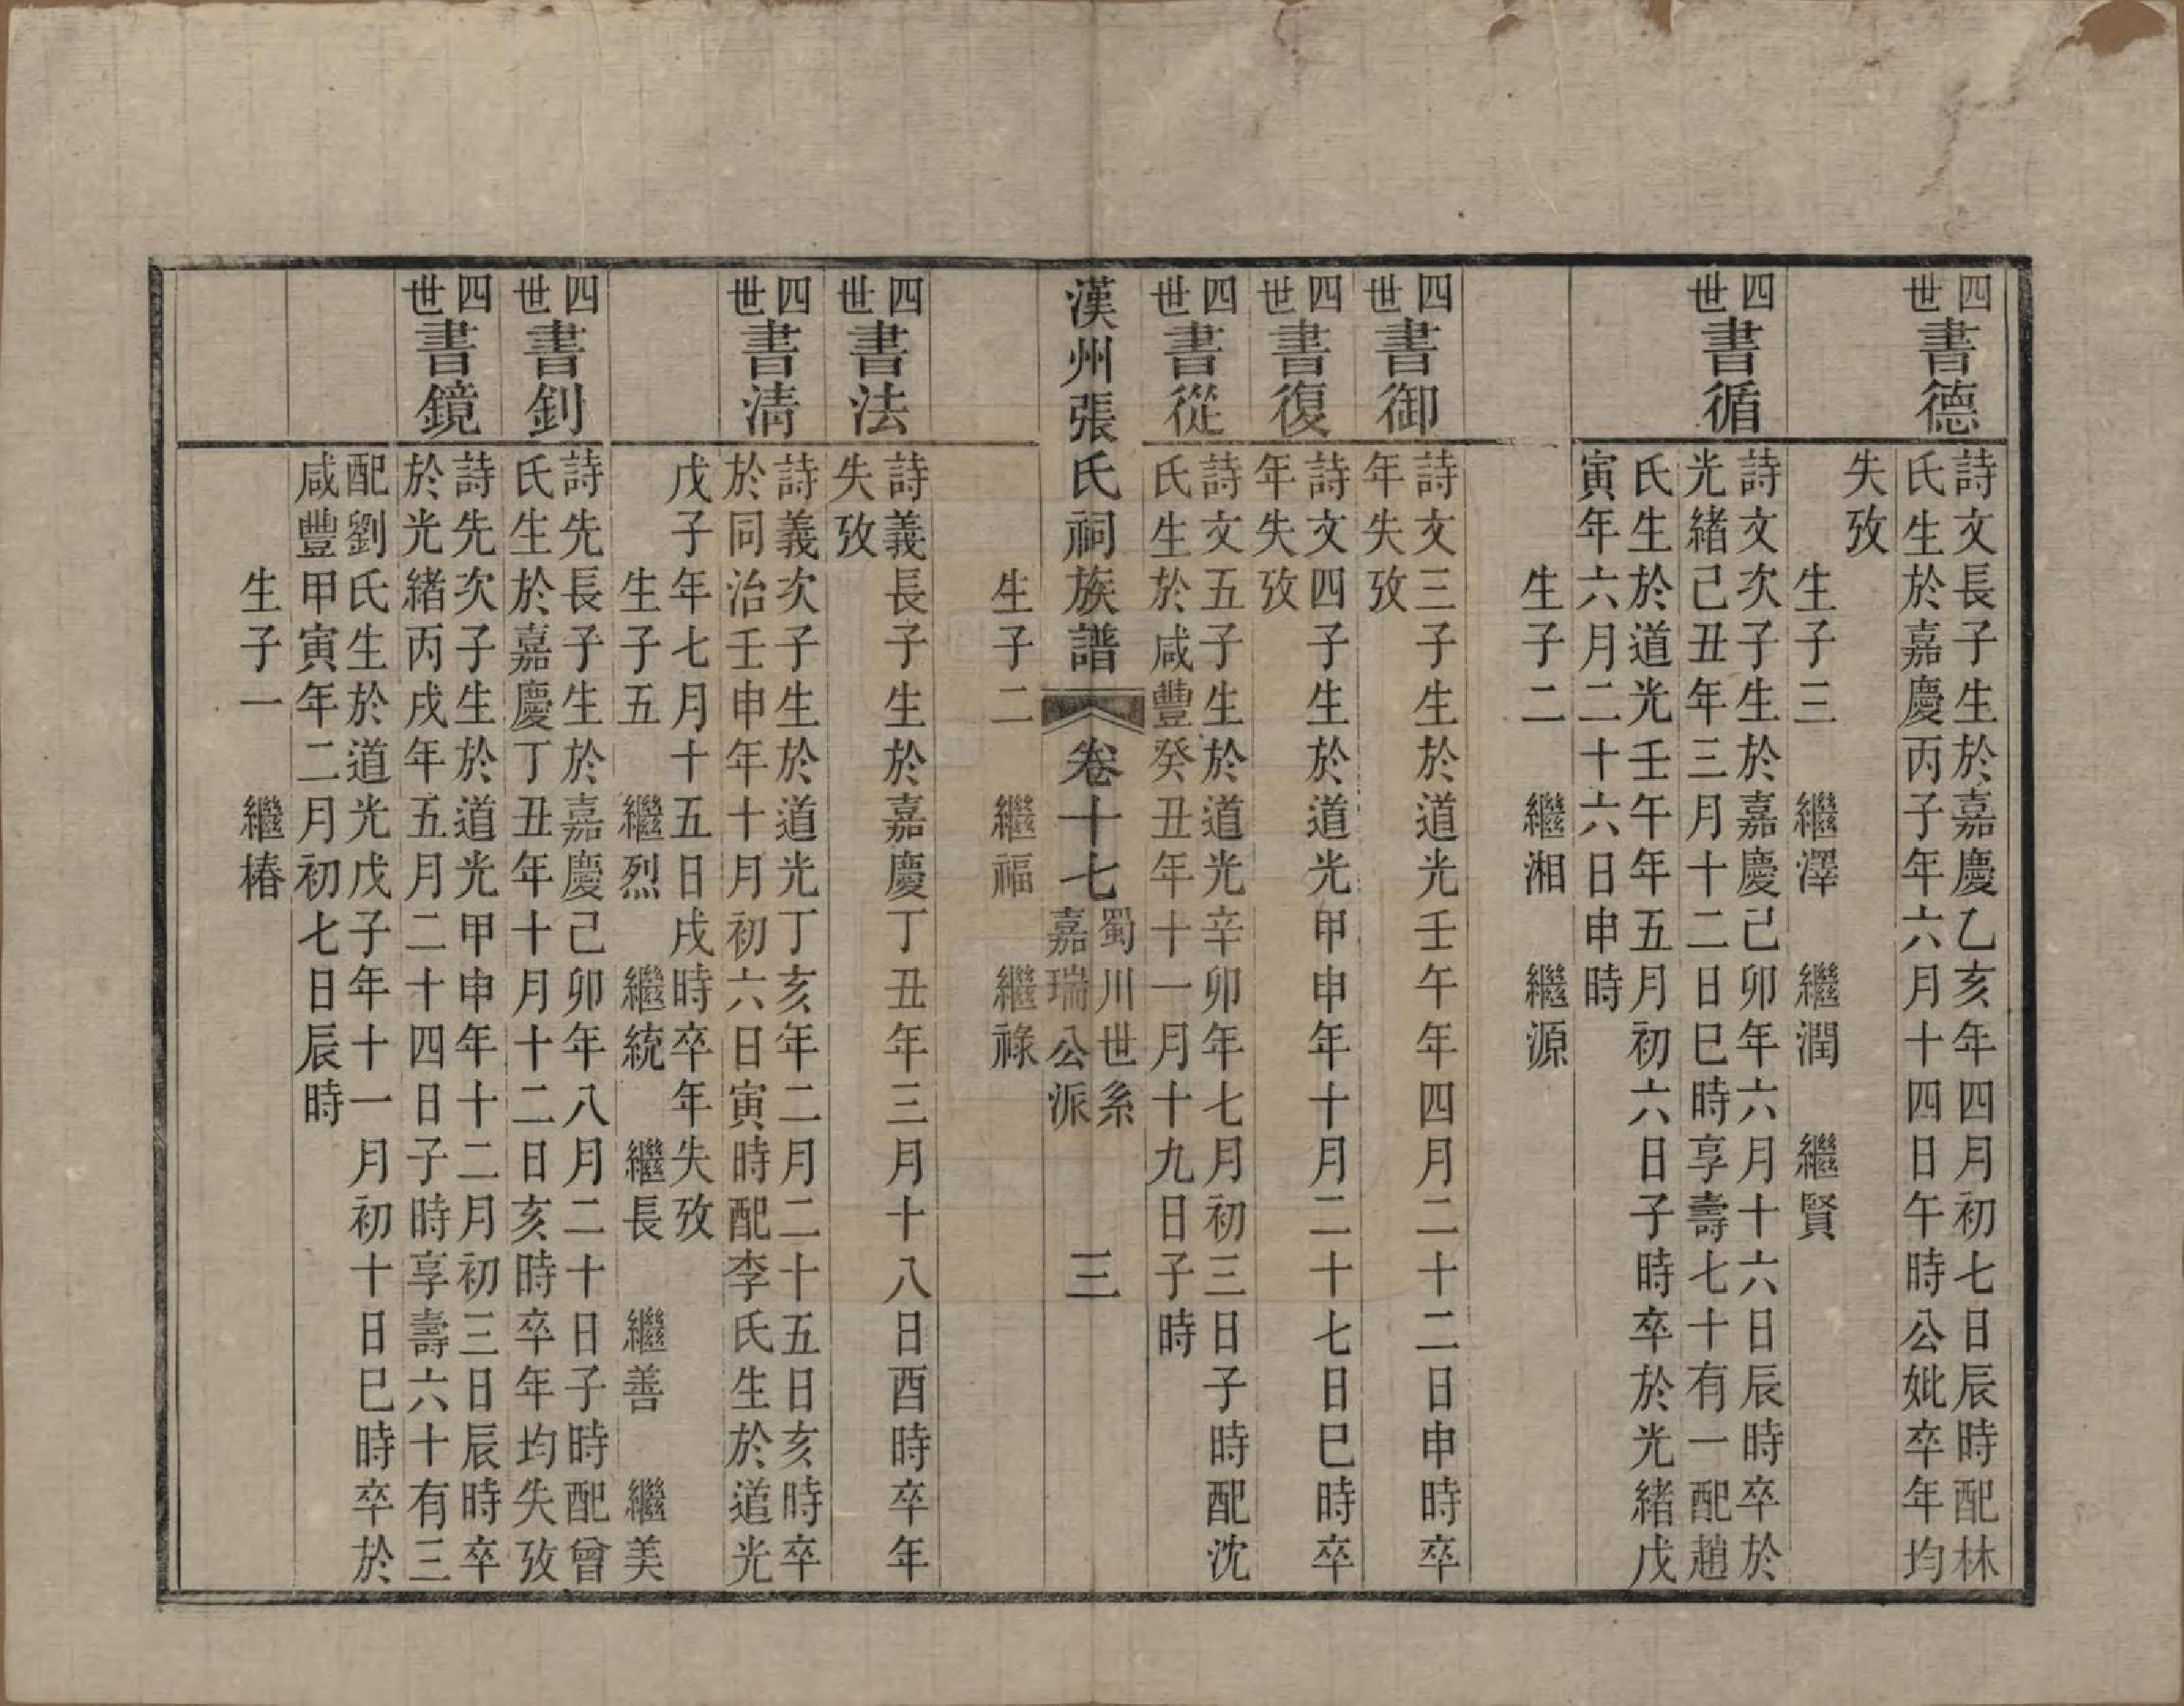 四世
書德
詩文長子生於嘉慶乙亥年四月初七日辰時配林
氏生於嘉慶丙子年六月十四日午時公妣卒年均
失攷
生子三　繼澤　繼潤　繼賢
四世
書循
詩文次子生於嘉慶己卯年六月十六日辰時卒於
光緒己丑年三月十二日巳時享壽七十有一配趙
氏生於道光壬午年五月初六日子時卒於光緒戊
寅年六月二十六日申時
生子二　繼湘　繼源
四世
書御
詩文三子生於道光壬午年四月二十二日申時卒
年失攷
四世
書復
詩文四子生於道光甲申年十月二十七日巳時卒
年失攷
四世
書從
詩文五子生於道光辛卯年七月初三日子時配沈
氏生於咸豐癸丑年十一月十九日子時
漢州張氏祠族譜　卷十七　蜀川世系
嘉瑞公派　三
生子二　繼福　繼祿
四世
書法
詩義長子生於嘉慶丁丑年三月十八日酉時卒年
失攷
四世
書清
詩義次子生於道光丁亥年二月二十五日亥時卒
於同治壬申年十月初六日寅時配李氏生於道光
戊子年七月十五日戌時卒年失攷
生子五　繼烈　繼統　繼長　繼善　繼美
四世
書釗
詩先長子生於嘉慶己卯年八月二十日子時配曾
氏生於嘉慶丁丑年十月十二日亥時卒年均失攷
四世
書鏡
詩先次子生於道光甲申年十二月初三日辰時卒
於光緒丙戌年五月二十四日子時享壽六十有三
配劉氏生於道光戊子年十一月初十日巳時卒於
咸豐甲寅年二月初七日辰時
生子一　繼椿